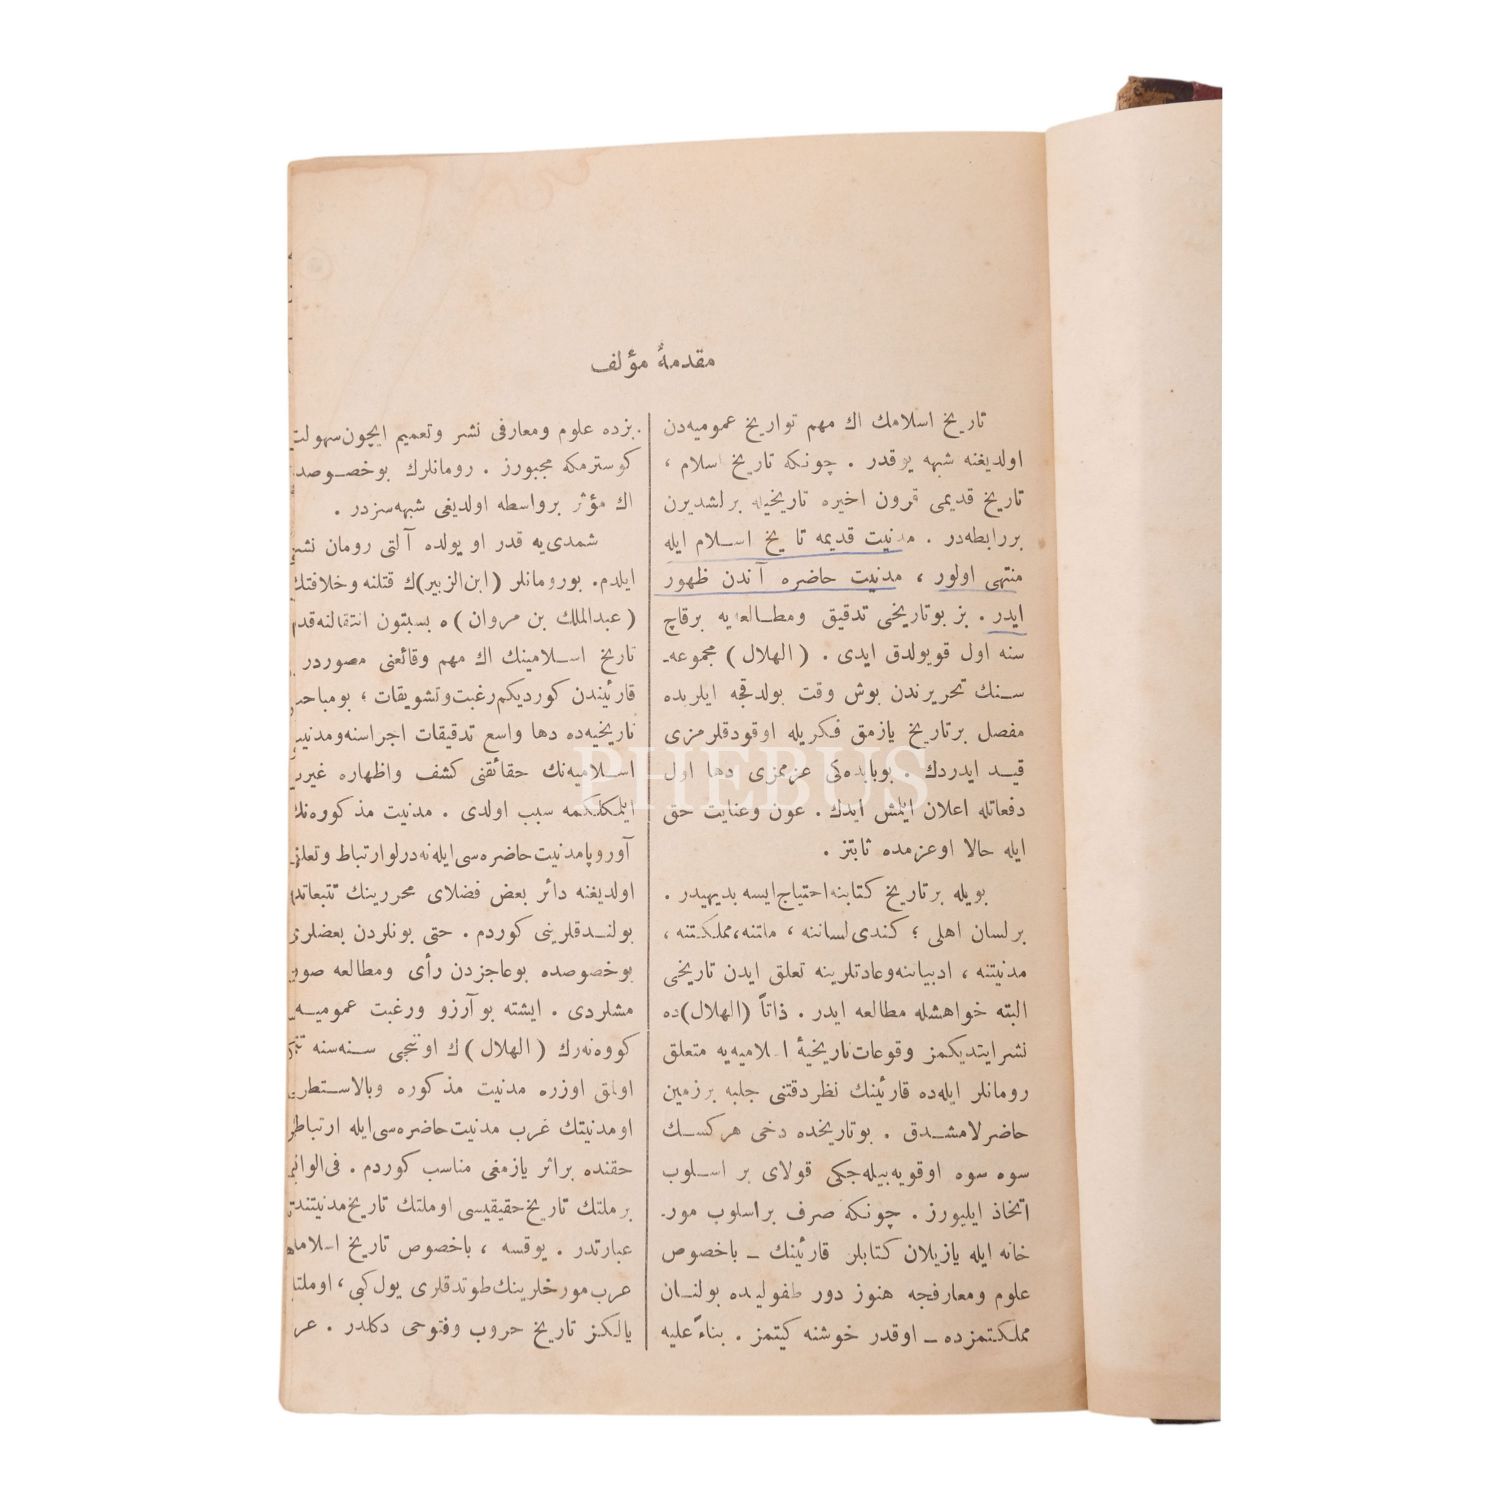 مقدمهٔ مؤلف
تاريخ اسلامك اك مهم تواريخ عموميه‌دن
اولديغنه شبهه يوقدر . چونكه تاريخ اسلام ،
تاريخ قديمى قرون اخيره تاريخيله برلشديرن
بررابطه‌در . مدنيت قديمه تاريخ اسـلام ايله
منتهى اولور ، مدنيت حاضره آندن ظهور
ايدر . بز بوتاريخى تدقيق ومطـالعه‌يه برقاچ
سنه اول قويولدق ايدى . (الهلال) مجموعه‌ـ
سـنك تحريرندن بوش وقت بولدقجه ايلريده
مفصل برتاريخ يازمق فكريله اوقودقلرمزى
قيـد ايدردك . بوبابده‌كى عزممزى دها اول
دفعاتله اعلان ايلمش ايدك . عون وعنايت حق
ايله حالا اوعزمده ثابتز .
بويله برتاريخ كتابنه احتياج ايسه بديهيدر .
برلسان اهلى ؛ كندى لساننه ، ملتنه ، مملكتنه ،
مدنيتنه ، ادبياتنه وعادتلرينه تعلق ايدن تاريخى
البته خواهشله مطالعه ايدر . ذاتاً (الهلال)ده
نشر ايتديكمز وقوعات تاريخيۀ اسلاميه‌يه متعلق
رومانلر ايله‌ده قارئينك نظر دقتنى جلبه برزمين
حاضرلامشـدق . بوتاريخده دخى هركسـك
سوه سوه اوقويه‌بيله‌جكى قولاى بر اسـلوب
اتخاذ ايليورز . چونكه صرف براسلوب مورـ
خانه ايله يازيلان كتابلر قارئينك ــ باخصوص
علوم ومعارفجه هنوز دور طفوليده بولنـان
مملكتمزده ــ اوقدر خوشنه كيتمز . بناءً عليه
بزده علوم ومعارفى نشر وتعميم ايچون سهولت
كوسترمكه مجبورز . رومانلرك بوخصـوصده
اك مؤثر برواسطه اولديغى شبهه‌سزدر .
شمدى‌يه قدر او يولده آلتى رومان نشر
ايلدم. بورومانلر (ابن الزبير)ك قتلنه وخلافتك
(عبدالملك بن مروان)ه بسبتون انتقالنه قدر
تاريخ اسـلامينك اك مهم وقائعنى مصوردر .
قارئيندن كورديكم رغبت وتشويقات ، بومباحث
تاريخيه‌ده دها واسع تدقيقات اجراسنه ومدنيت
اسـلاميه‌نك حقائقنى كشف واظهاره غيرت
ايلمكلكمه سبب اولدى . مدنيت مذكوره‌نك
آوروپا مدنيت حاضره‌سى ايله نه درلو ارتباط وتعلق
اولديغنه دائر بعض فضلاى محررينك تتبعاتده
بولنـدقلرينى كوردم . حتى بونلردن بعضلرى
بوخصوصده بوعاجزدن رأى ومطالعه صور
مشلردى . ايشته بو آرزو ورغبت عموميه‌يى
كووه‌نه‌رك (الهلال)ك اوننجى سـنه‌سنه تتمه
اولمق اوزره مدنيت مذكوره وبالاسـتطراد
اومدنيتك غرب مدنيت حاضره‌سى ايله ارتباطى
حقنده براثر يازمغى مناسب كوردم . فى الواقع
برملتك تاريخ حقيقيسى اوملتك تاريخ مدنيتندن
عبارتدر . يوقسه ، باخصوص تاريخ اسلامده
عرب مورخلرينك طوتدقلرى يول كبى ، اوملتك
يالكز تاريخ حروب وفتوحى دكلدر .
PHEBUS